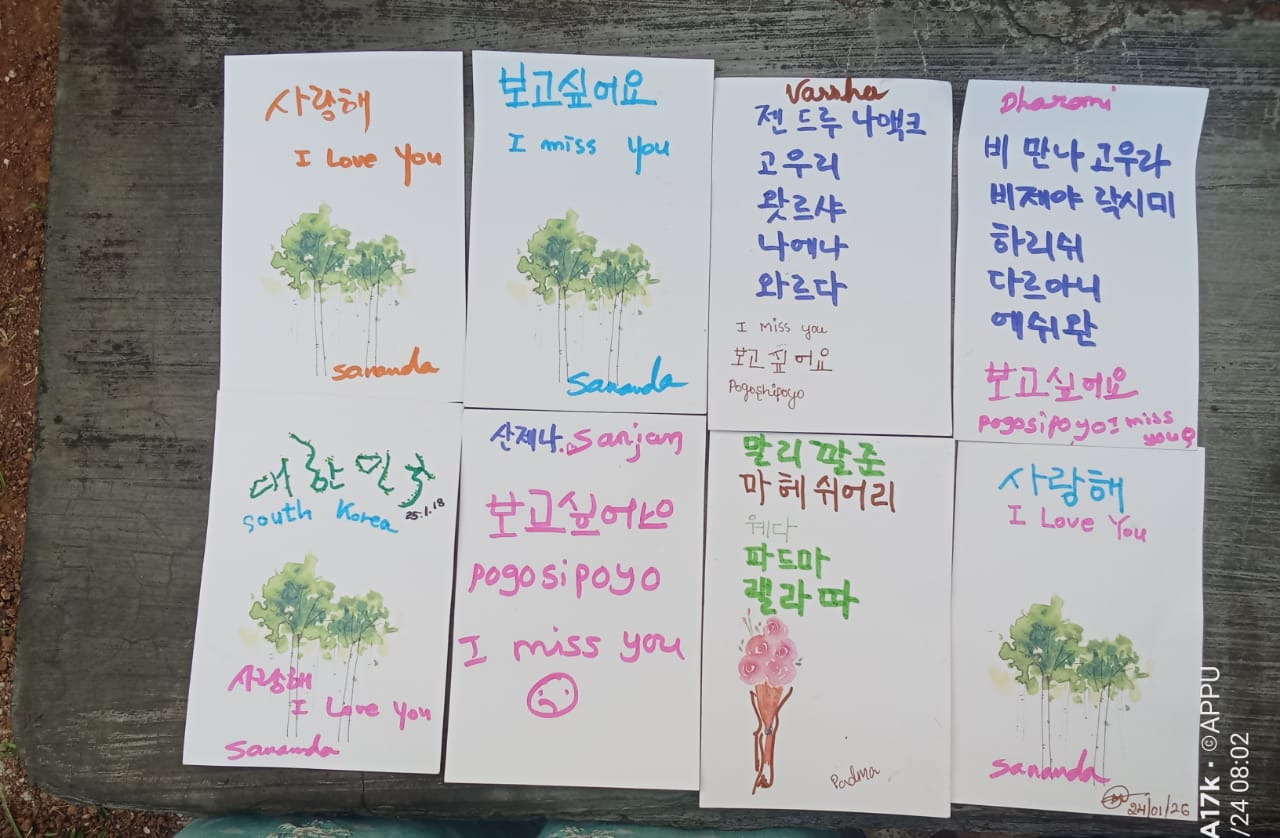 사랑해
I Love You
sananda
보고싶어요
I miss you
Sananda
Varsha
젠 드루 나액크
고우리
왓르샤
나에나
와르다
I miss you
보고 싶 어요
Pogoshipoyo
Dharani
비 만나 고우라
비제야 락시미
하리쉬
다르아니
에쉬완
보고싶어요
pogosipoyo I miss
you
대한민국
South Korea
25.1.18
사랑해
I Love You
Sananda
산제나 Sanjan
보고싶어요
pogosipoyo
I miss you
말리 깔 준
마 헤 쉬어리
웨다
파드마
랠라 따
Padma
사랑해
I Love You
Sananda
24/01/26
A17k • ©APPU
/24 08:02